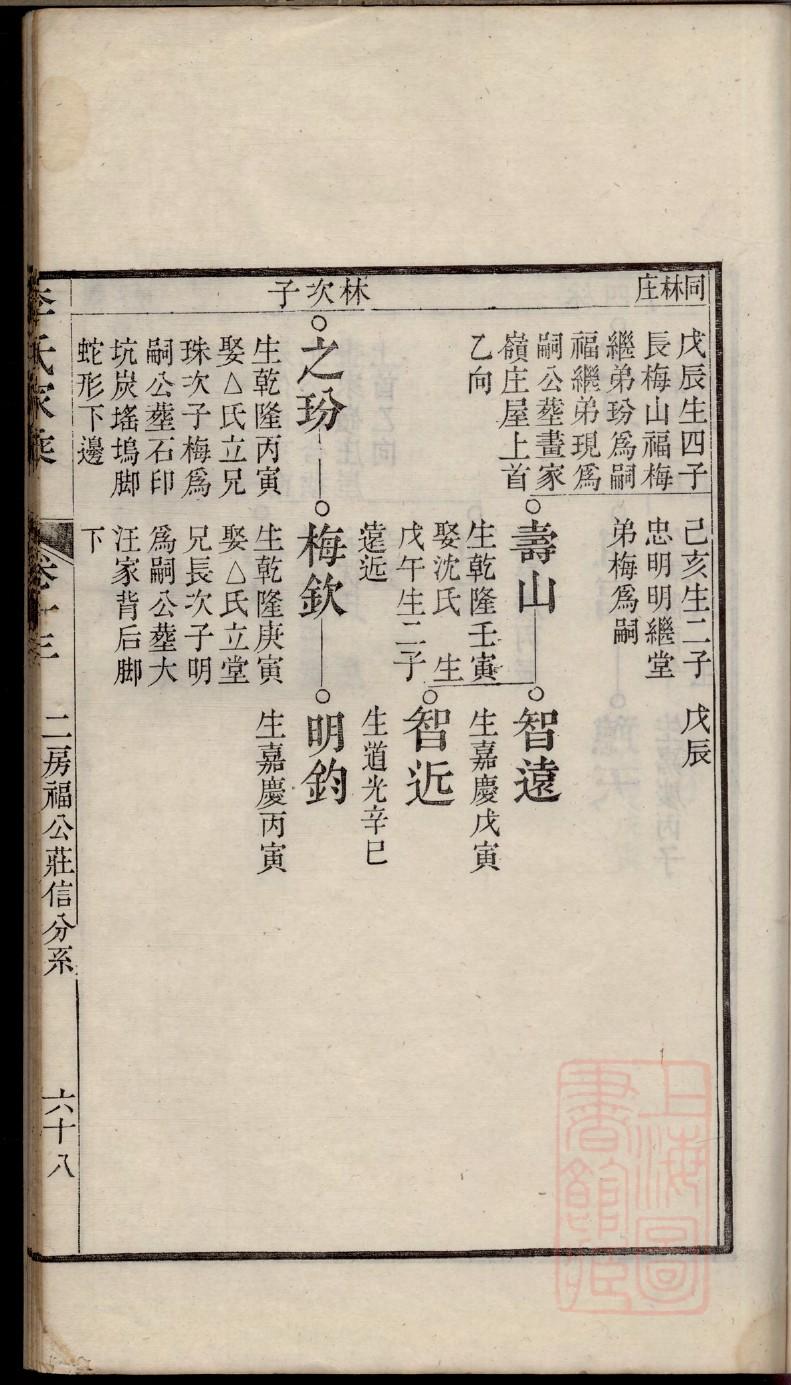 同林庄
戊辰生四子
長梅山福梅
繼弟玢為嗣
福繼弟現為
嗣公塟畫家
嶺庄屋上首
乙向
己亥生二子
忠明明繼堂
弟梅為嗣
戊辰
壽山
生乾隆壬寅
娶沈氏 生
戊午生二子
遠近
智遠
生嘉慶戊寅
智近
生道光辛巳
林次子
之玢
生乾隆丙寅
娶△氏立兄
珠次子梅爲
嗣公塟石印
坑炭瑤塢脚
蛇形下邊
梅欽
生乾隆庚寅
娶△氏立堂
兄長次子明
爲嗣公塟大
汪家背后脚
下
明鈞
生嘉慶丙寅
李氏家乘
卷十三
二房福公莊信分系
六十八
上海圖
書館藏